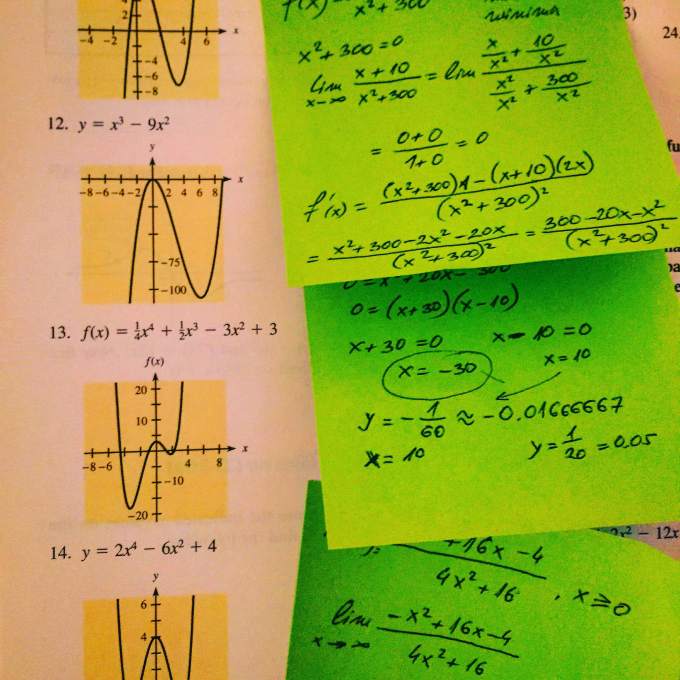 2
-4 -2 4 6 x
-4
-6
-8
12. y = x³ − 9x²
y
-8 -6 -4 -2 2 4 6 8 x
-75
-100
13. f(x) = ¼x⁴ + ½x³ − 3x² + 3
f(x)
20
10
-8 -6 4 8 x
-10
-20
14. y = 2x⁴ − 6x² + 4
y
6
4
x²+300
minima
x²+300=0
lim x→∞ (x+10)/(x²+300) = lim (x/x² + 10/x²)/(x²/x² + 300/x²)
= (0+0)/(1+0) = 0
f'(x) = ((x²+300)1−(x+10)(2x))/(x²+300)²
= (x²+300−2x²−20x)/(x²+300)² = (300−20x−x²)/(x²+300)²
0=(x+30)(x−10)
x+30=0 x−10=0
x=−30 x=10
y=−1/60 ≈ −0.01666667
x=10 y=1/20=0.05
+16x−4
4x²+16 , x≥0
lim x→∞ (−x²+16x−4)/(4x²+16)
3)
24.
− 12x